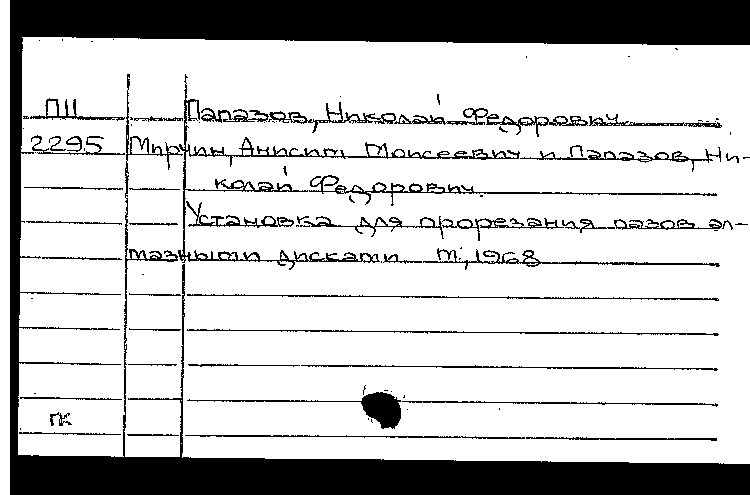 П11 Папазов, Николай Федорович
2295 Мирчин, Анисим Моисеевич и Папазов, Ни-
колай Федорович.
Установка для прорезания пазов ал-
мазными дисками М., 1968
ГК